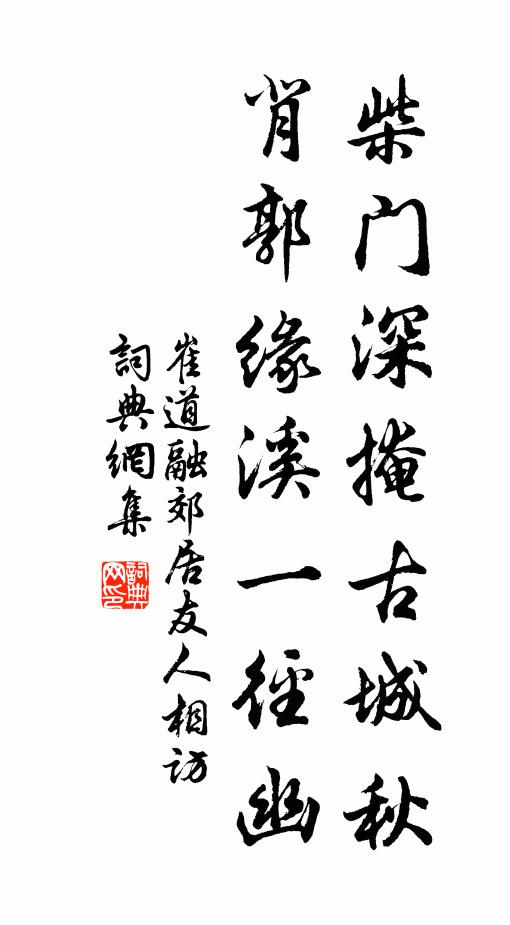 柴门深掩古城秋
背郭缘溪一径幽
崔道融郊居友人相访
詞典網集
詞典
网印